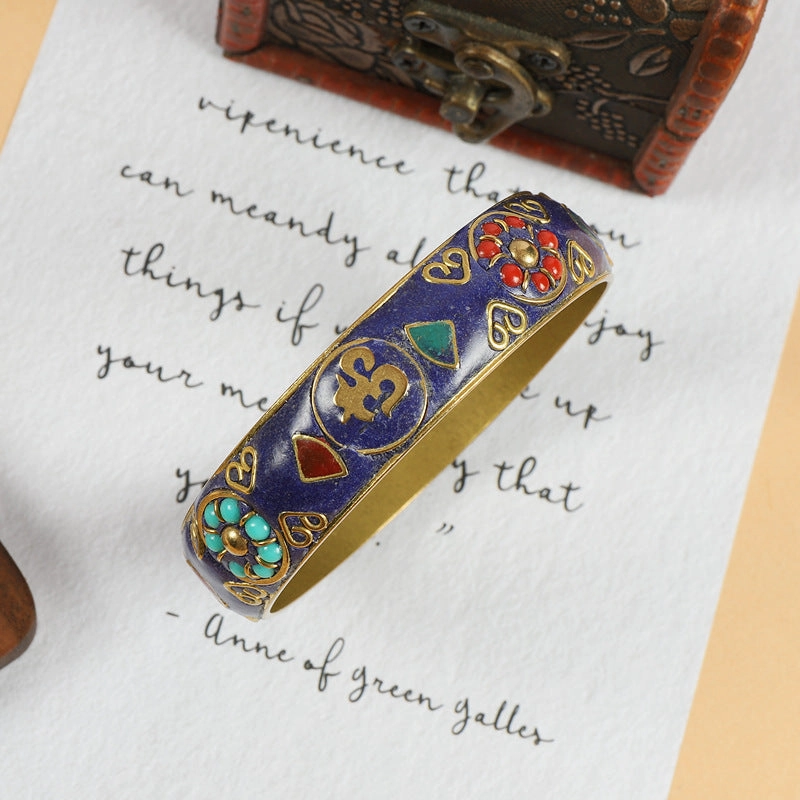 vipenience that you
can meandy al
things if njoy
your me e up
y y that
. "
- Anne of green galles